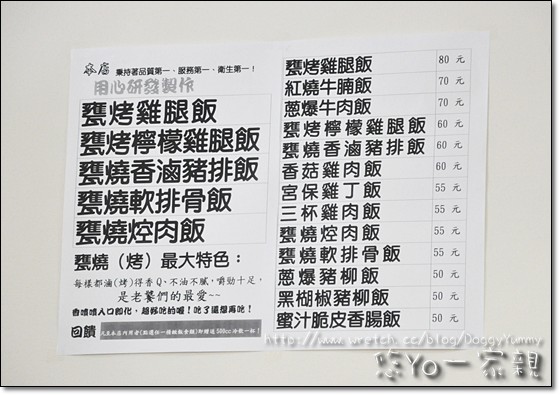 本店 秉持著品質第一、服務第一、衛生第一！
用心研發製作
甕烤雞腿飯
甕烤檸檬雞腿飯
甕燒香滷豬排飯
甕燒軟排骨飯
甕燒焢肉飯
甕燒（烤）最大特色：
每樣都滷(烤)得香Q、不油不膩，嚼勁十足，
是老饕們的最愛~~
香噴噴入口即化，超好吃的喔！吃了還想再吃！
回饋 凡至本店內用者(點選任一種椒飯食餐)即贈送500cc冷飲一杯！
甕烤雞腿飯 80 元
紅燒牛腩飯 70 元
蔥爆牛肉飯 70 元
甕烤檸檬雞腿飯 60 元
甕燒香滷豬排飯 60 元
香菇雞肉飯 60 元
宮保雞丁飯 55 元
三杯雞肉飯 55 元
甕燒焢肉飯 55 元
甕燒軟排骨飯 55 元
蔥爆豬柳飯 50 元
黑椒豬柳飯 50 元
蜜汁脆皮香腸飯 50 元
http://www.wretch.cc/blog/DoggyYummy
悠Yo一家親